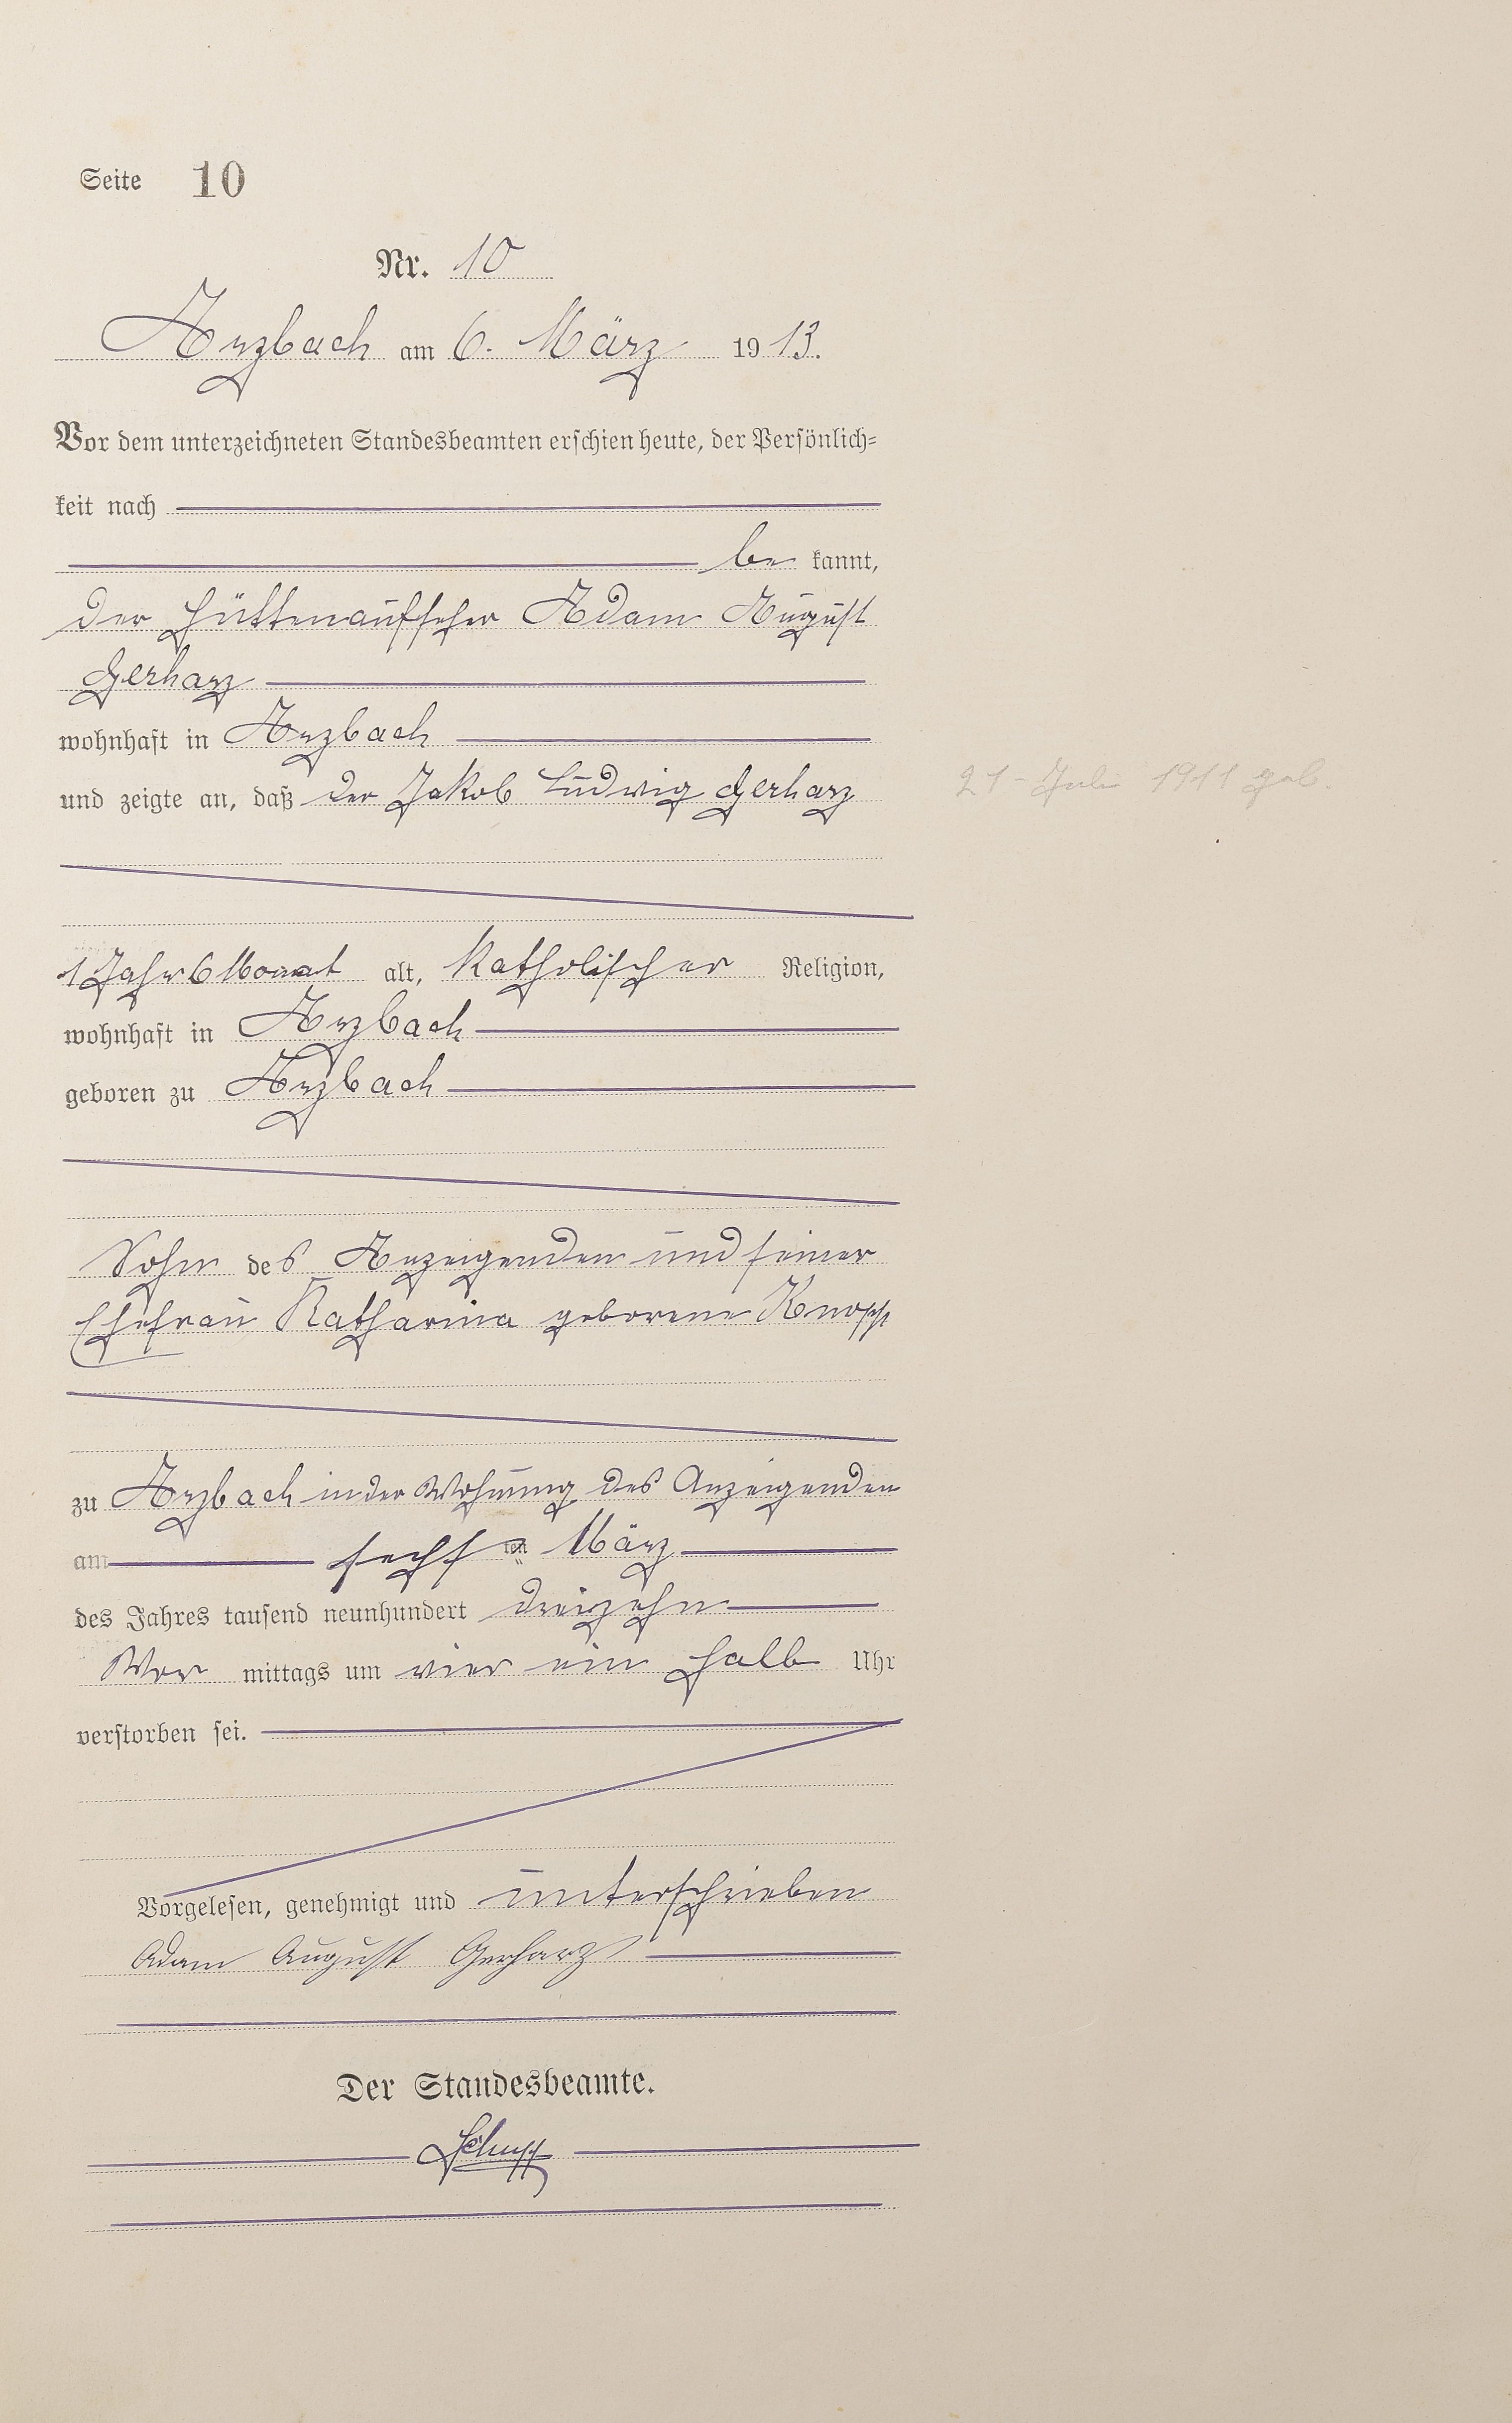 Seite 10
Nr. 10
Arzbach am 6. März 1913.
Vor dem unterzeichneten Standesbeamten erschien heute, der Persönlich=
keit nach
be kannt,
der Hüttenaufseher Adam August
Gerharz
wohnhaft in Arzbach
und zeigte an, daß der Jakob Ludwig Gerharz
21. Juli 1911 geb.
1 Jahr 6 Monat alt, katholischer Religion,
wohnhaft in Arzbach
geboren zu Arzbach
Sohn des Anzeigenden und seiner
Ehefrau Katharina geborene Knopp
zu Arzbach in der Wohnung des Anzeigenden
am sechsten März
des Jahres tausend neunhundert dreizehn
Vor mittags um vier ein halb Uhr
verstorben sei.
Vorgelesen, genehmigt und unterschrieben
Adam August Gerharz
Der Standesbeamte.